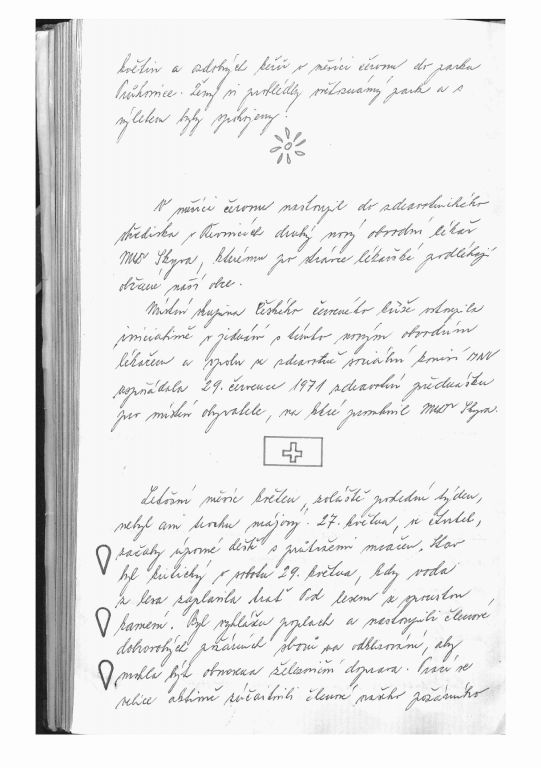 květin a ozdobných keřů v měsíci červnu do parku
Průhonice. Ženy si prohlédly světoznámý park a s
výletem byly spokojeny.
V měsíci červnu nastoupil do zdravotnického
střediska v druhý nový obvodní lékař
MUDr Skyva, kterému po stránce lékařské podléhají
občané naší obce.
Místní skupina Českého červeného kříže vstoupila
iniciativně v jednání s tímto novým obvodním
lékařem a spolu se zdravotně sociální komisí MNV
uspořádala 29. července 1971 zdravotní přednášku
pro místní obyvatele, na které promluvil MUDr Skyva.
Letošní měsíc květen, zvláště poslední týden,
nebyl ani trochu májový. 27. května, ve čtvrtek,
začaly úporné deště s průtržemi mračen. Stav
byl kritický v sobotu 29. května, kdy voda
z lesa zaplavila trať Pod lesem se spoustou
kamení. Byl vyhlášen poplach a nastoupili členové
dobrovolných požárních sborů na odklizování, aby
mohla být obnovena železniční doprava. Prací se
velice aktivně zúčastnili členové našeho požárního